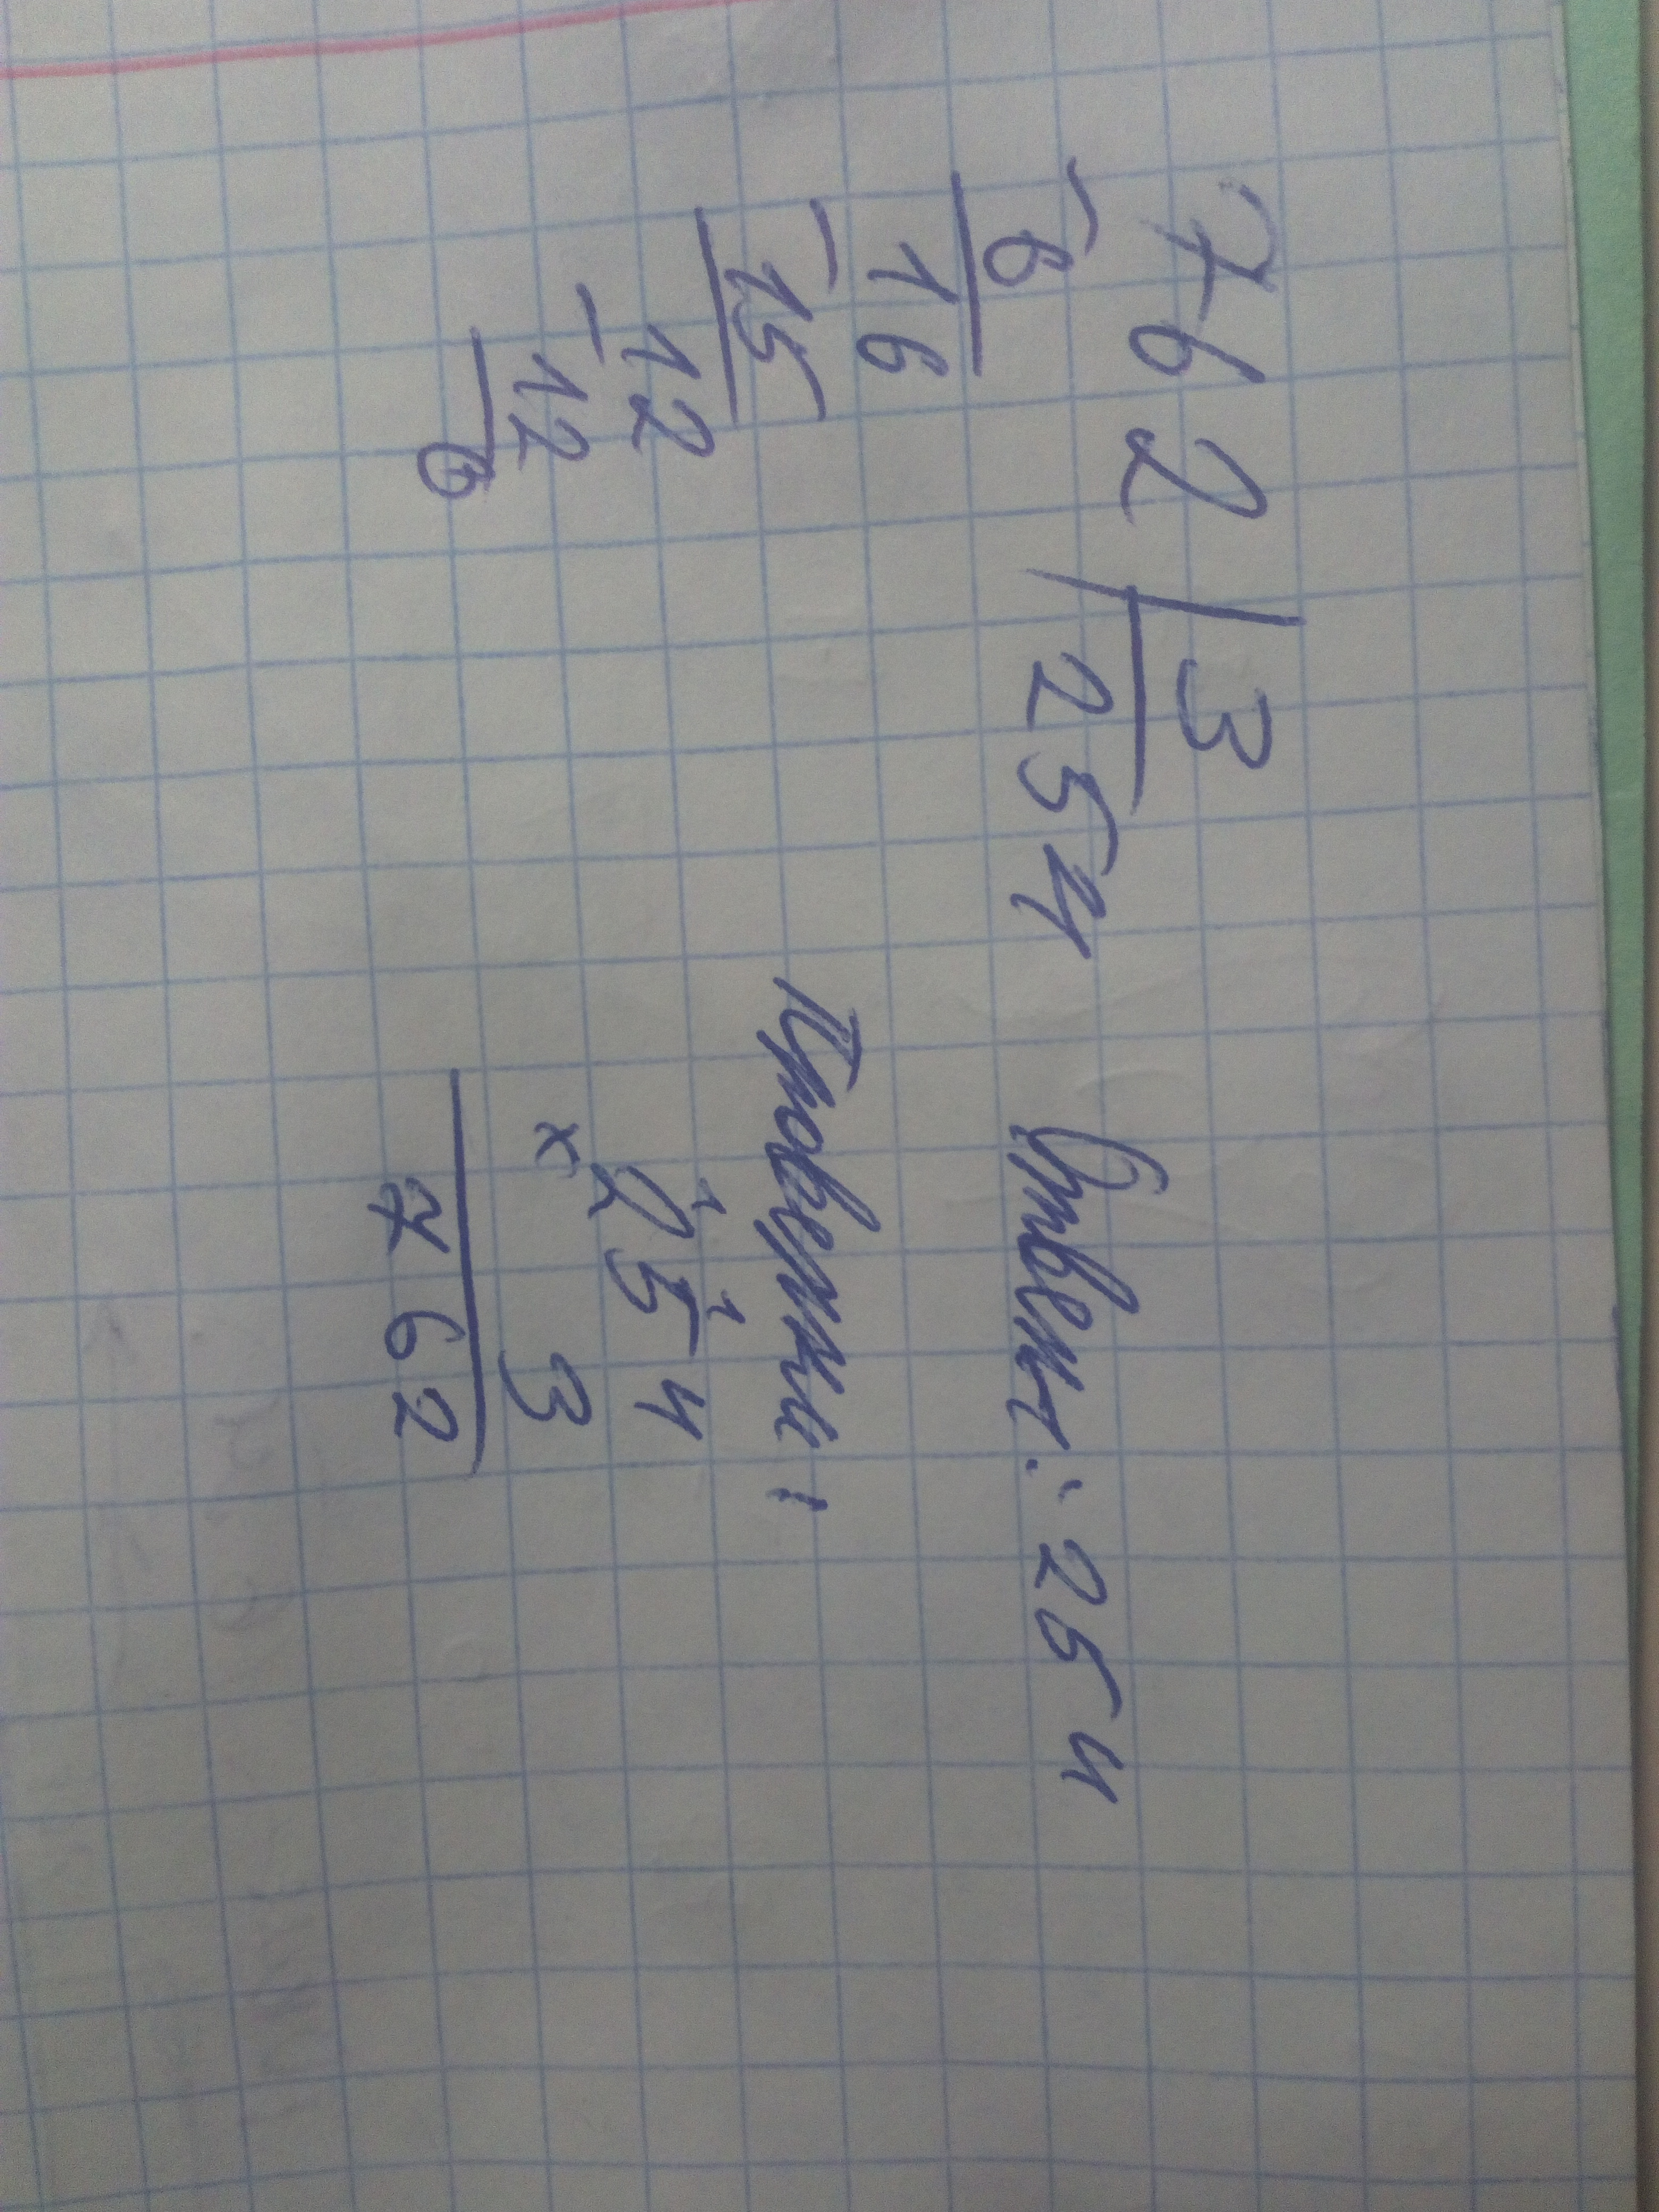 762 | 3
- 6 254
16
- 15
12
- 12
0
Ответ: 254
Проверка:
1 1
× 254
3
762